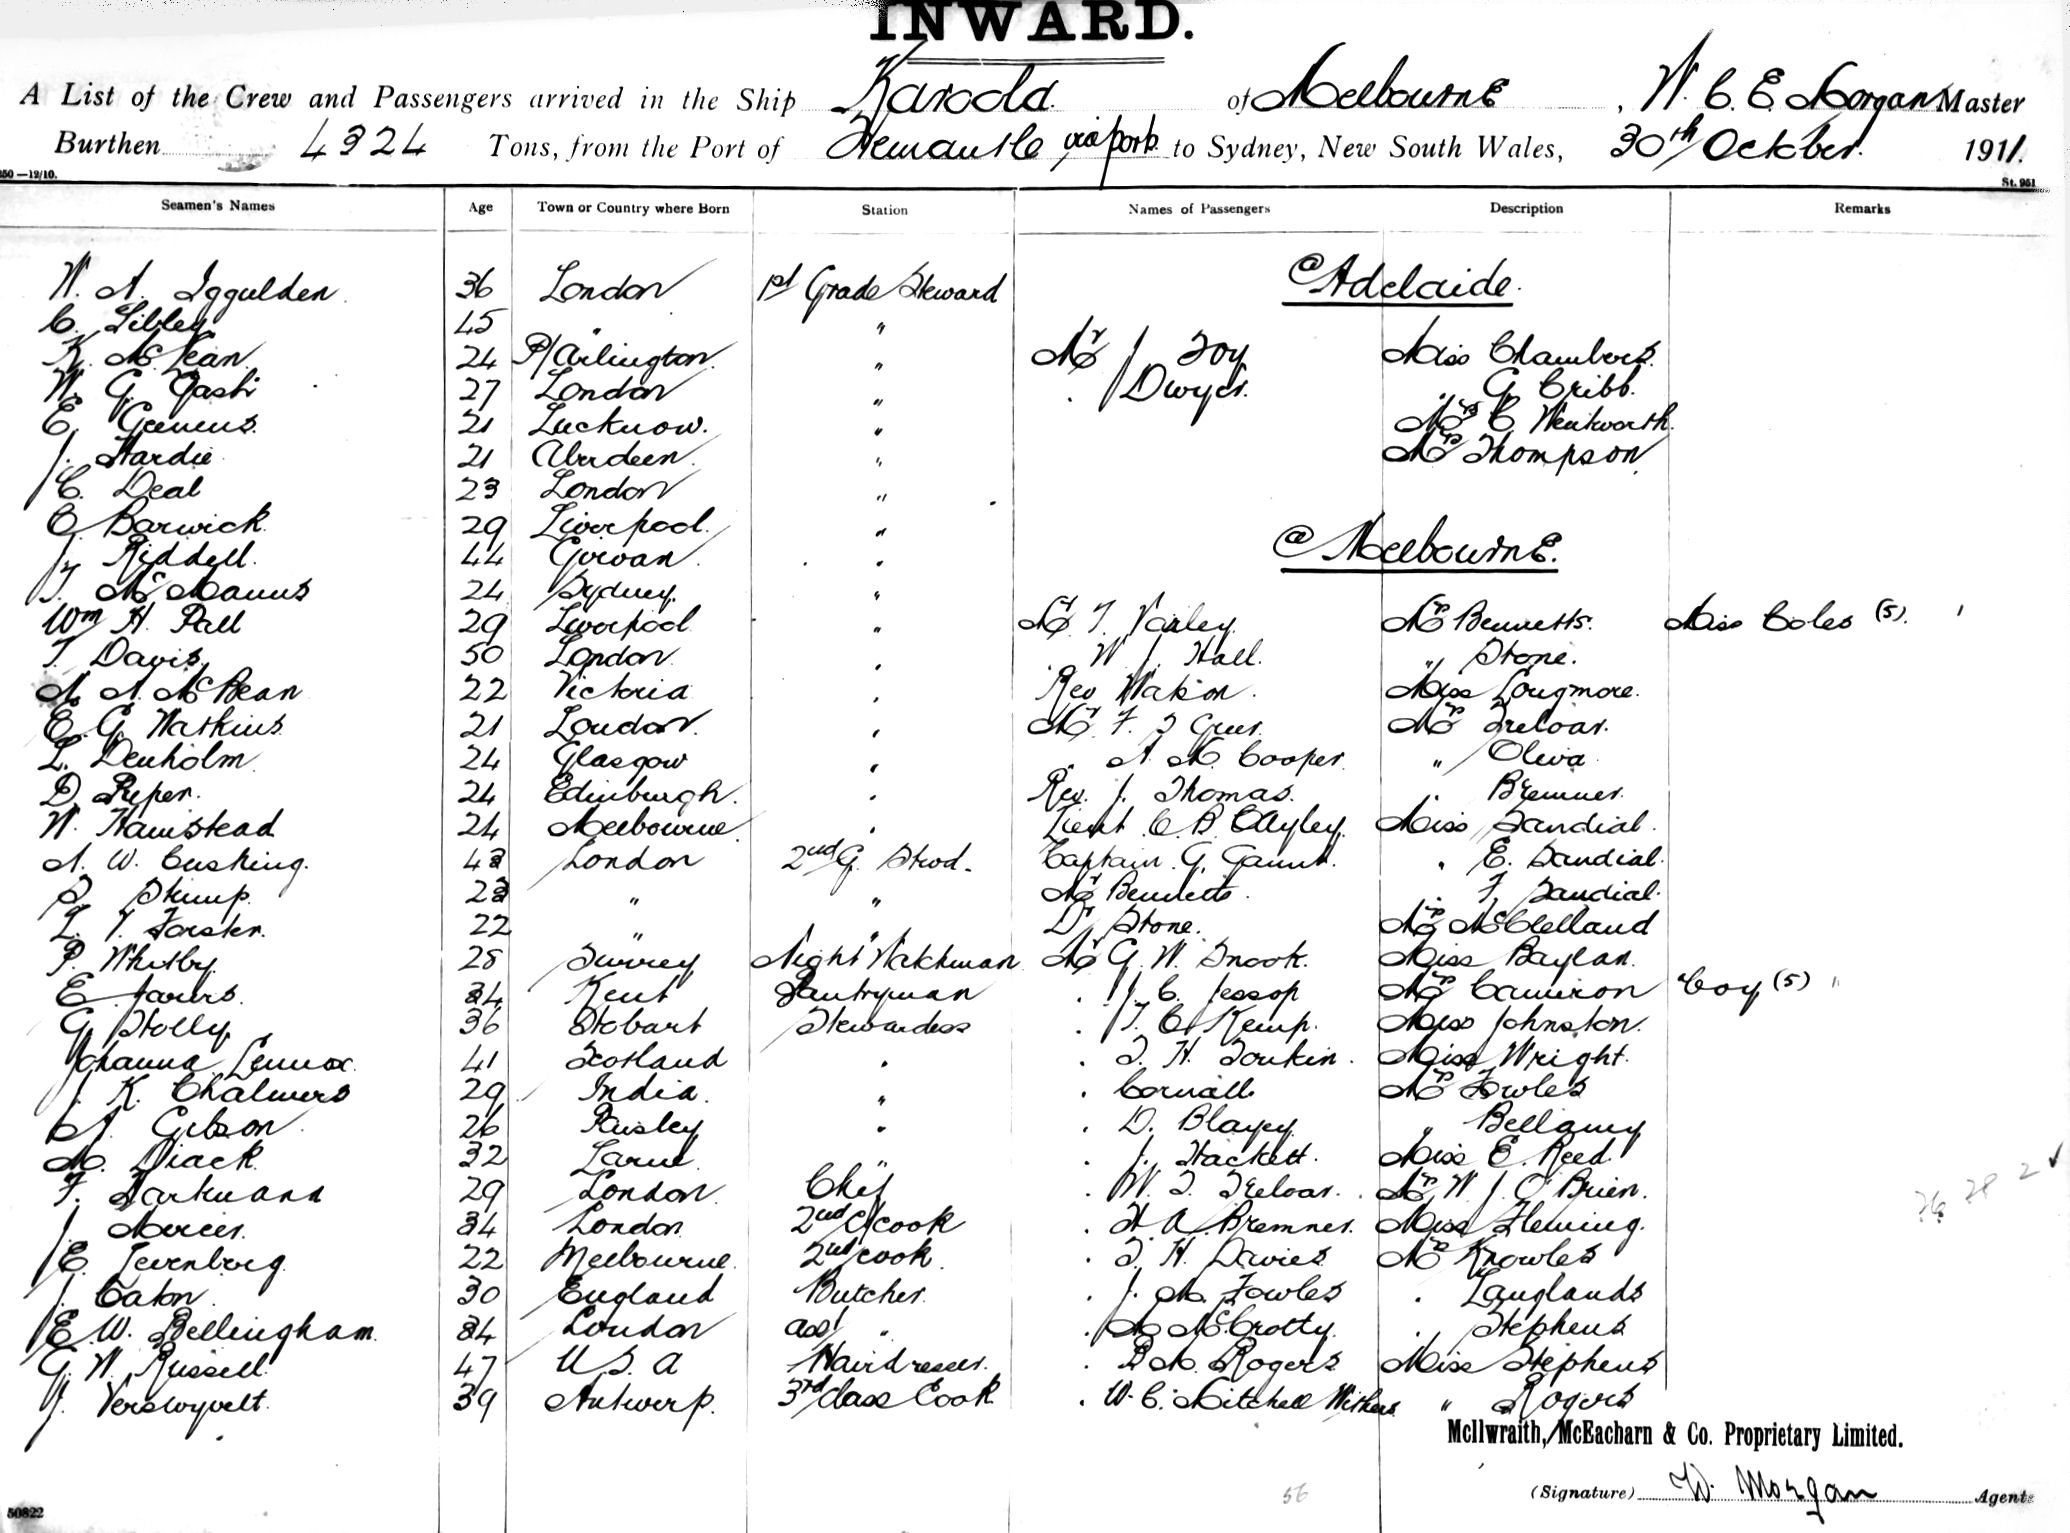 INWARD.
A List of the Crew and Passengers arrived in the Ship Karoola of Melbourne, W. C. E. Morgan Master
Burthen 4324 Tons, from the Port of Fremantle via ports to Sydney, New South Wales, 30th October 1911.
250 —12/10. St. 951
Seamen's Names Age Town or Country where Born Station Names of Passengers Description Remarks
@ Adelaide.
W. A. Iggulden 36 London 1st Grade Steward
C. Sibley 45 " "
K. McVean 24 P/Arlington " Mr J Foy Miss Chambers
W. G. Gash 27 London " Dwyer. " G. Cribb.
E. Geenens 21 Lucknow. " Mrs C Wentworth.
J. Hardie 21 Aberdeen. " Mrs Thompson
C. Deal 23 London "
@ Melbourne.
C. Barwick 29 Liverpool. "
J. Riddell 44 Govan "
T. McManus 24 Sydney. "
Wm H. Pall 29 Liverpool " Mr T. Varley. Mrs Bennetts. Miss Coles (5).
T. Davis 50 London " W. J. Hall. " Stone.
M. A. McBean 22 Victoria " Rev Watson. Miss Longmore.
E. G. Watkins 21 London " Mr F. S Grer. Mrs Treloar.
L. Denholm 24 Glasgow " " A. M. Cooper. " Oliva
D. Peper. 24 Edinburgh. " Rev. J. Thomas. " Bremner.
W. Hamstead 24 Melbourne " Lieut C. B. Clayley. Miss Sandial.
A. W. Cushing. 43 London 2nd G. Stwd. Captain G. Gaunt. " E. Sandial.
S. Stump. 23 " " Mr Bennetts. " F. Sandial.
L. T. Forster. 22 " " Dr Stone. Mrs McClelland
P. Whitby 28 Surrey Night Watchman Mr G. W. Snook. Miss Baylan.
E. Jarers. 34 Kent Pantryman " J. C. Jessop Mrs Cameron Coy (5) "
G. Holly 36 Hobart Stewardess " T. C. Kemp. Miss Johnston.
Johanna Lennox. 41 Scotland " " T. H. Tonkin. Miss Wright.
J. K. Chalmers 29 India. " " Cornall. Mrs Fowles
A. Gibson 26 Paisley " " D. Blayey " Bellamy
M. Diack 32 Larne " " J. Hackett. Miss E. Reed.
F. Zarkmann 29 London Chef " W. T. Treloar. Mrs W. J. O'Brien.
J. Mercer. 34 London. 2nd C/cook " H. A. Bremner. Miss Fleming.
E. Levenberg. 22 Melbourne. 2nd cook " T. H. Davies Mrs Knowles
J. Eaton. 30 England Butcher. " J. M. Fowles " Langlands
E. W. Bellingham. 34 London ass/ " " M McCrotty. " Stephens
G. W. Russell. 47 U. S. A Hairdresser. " P. M. Rogers Miss Stephens
J. Verswyvelt. 39 Antwerp. 3rd class Cook " W. C. Mitchell Withers " Rogers
McIlwraith, McEacharn & Co. Proprietary Limited.
56 (Signature) W. Morgan Agents
50822